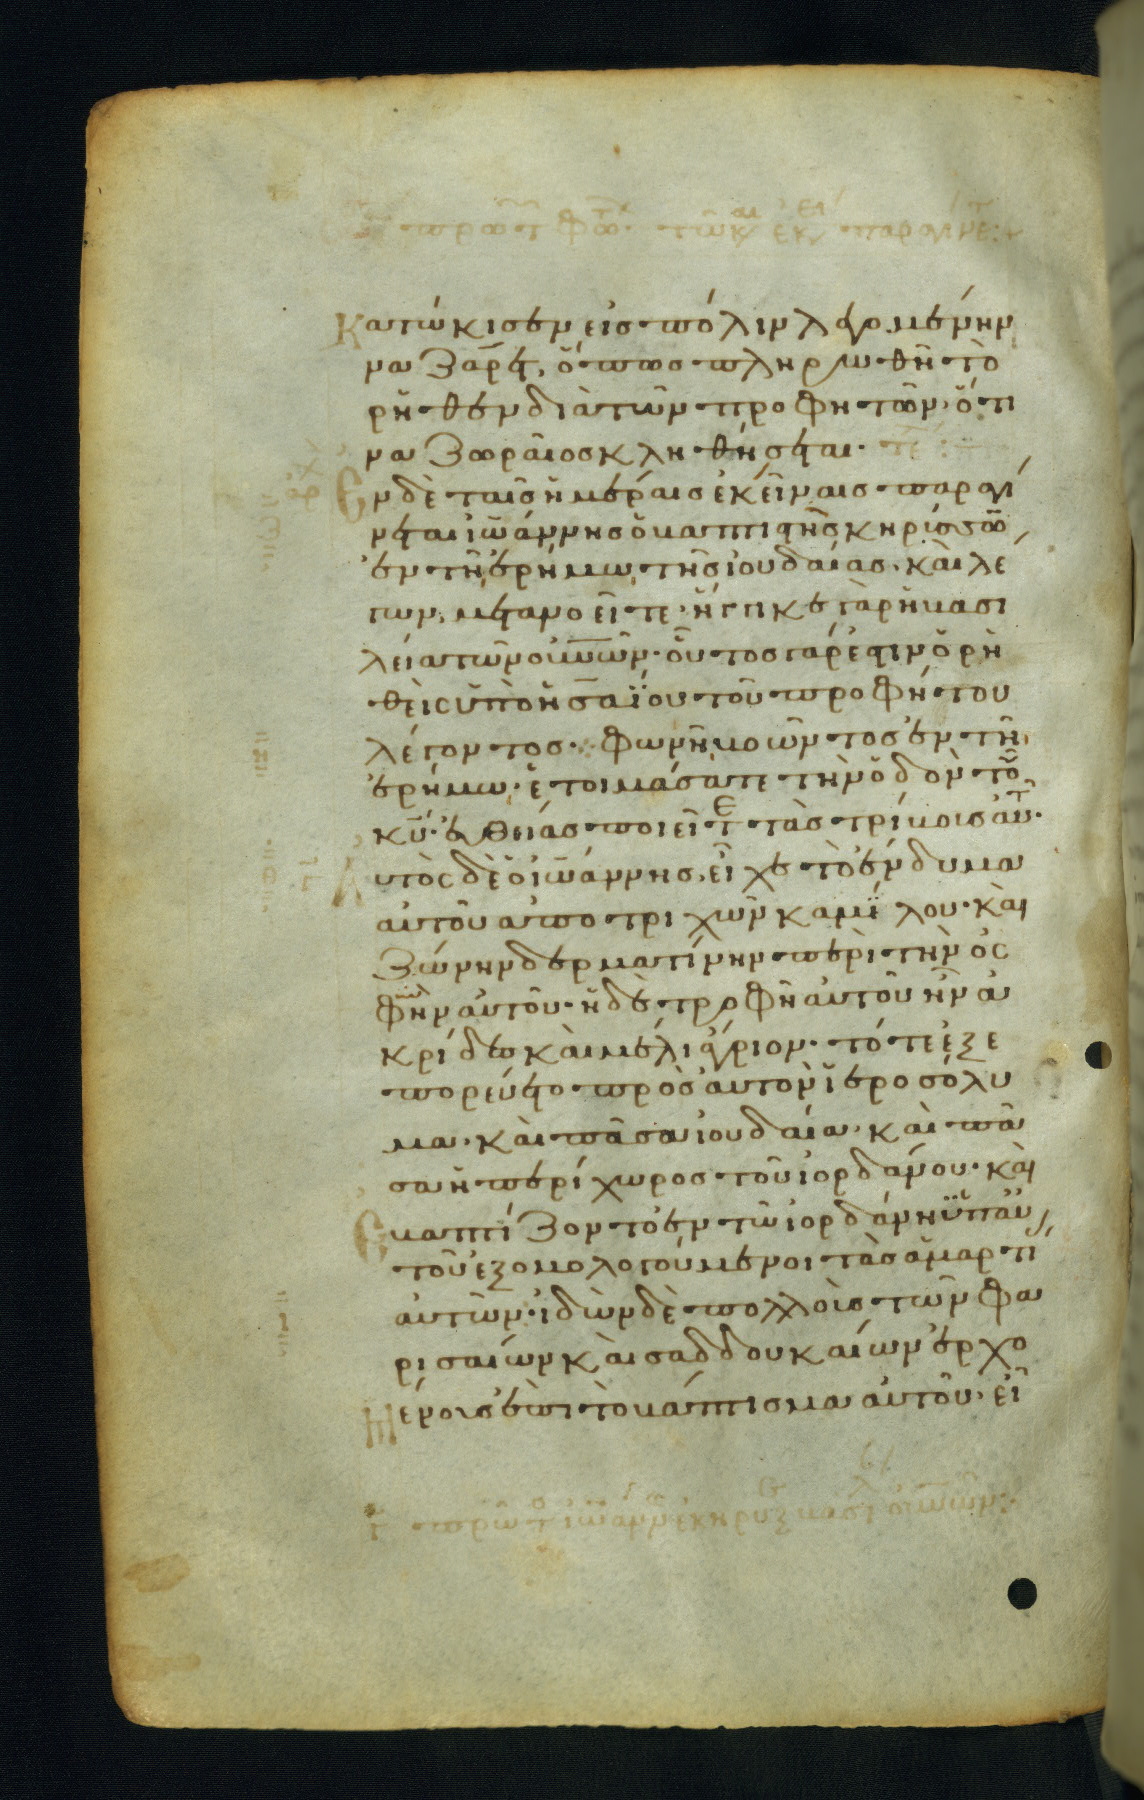 Κατώκισεν εἰς πόλιν λεγομένην
ναζαρέτ, ὅπως πληρωθῆ τὸ
ρηθὲν διὰ τῶν προφητῶν· ὅτι
ναζωραῖος κληθήσεται.
Ἐν δὲ ταῖς ἡμέραις ἐκείναις παραγί
νεται ἰωάννης ὁ βαπτιστὴς κηρίσσων
ἐν τῇ ἐρήμω τῆς ἰουδαίας. καὶ λέ
γων, μετανοεῖτε· ἤγγικε γὰρ ἡ βασι
λεία τῶν οὐνῶν· οὗτος γάρ ἐστιν ὁ ρη
θεὶς ὑπὸ ἡσαΐου τοῦ προφήτου
λέγοντος· φωνὴ βοῶντος ἐν τῆ
ἐρήμω· ἑτοιμάσατε τὴν ὁδὸν τοῦ
κυ· εὐθείας ποιεῖτε τὰς τρίβοις αὐτ·
Αυτὸς δὲ ὁ ἰωάννης, εἶχε τὸ ἔνδυμα
αυτοῦ απο τριχῶν καμίλου. καὶ
ζώνην δερματίνην περὶ τὴν ὀσ
φὴν αὐτοῦ· ἡ δὲ τροφὴ αὐτοῦ ἦν ἀ
κρίδες καὶ μέλι ἄγριον. τότε ἐξε
πορεύετο πρὸς αυτὸν ἱεροσόλυ
μα. καὶ πᾶσα ἰουδαία. καὶ πᾶ
σα ἡ περίχωρος τοῦ ἰορδάνου. καὶ
Εβαπτίζοντο ἐν τῶ ἰορδάνη ὑπ αὐ
τοῦ ἐξομολογούμενοι τὰς ἁμαρτί
αυτῶν· ἰδὼν δὲ πολλοὺς τῶν φα
ρισαίων καὶ σαδδουκαίων ἐρχο
Μένοις ἐπὶ τὸ βάπτισμα αὐτοῦ. εἶ